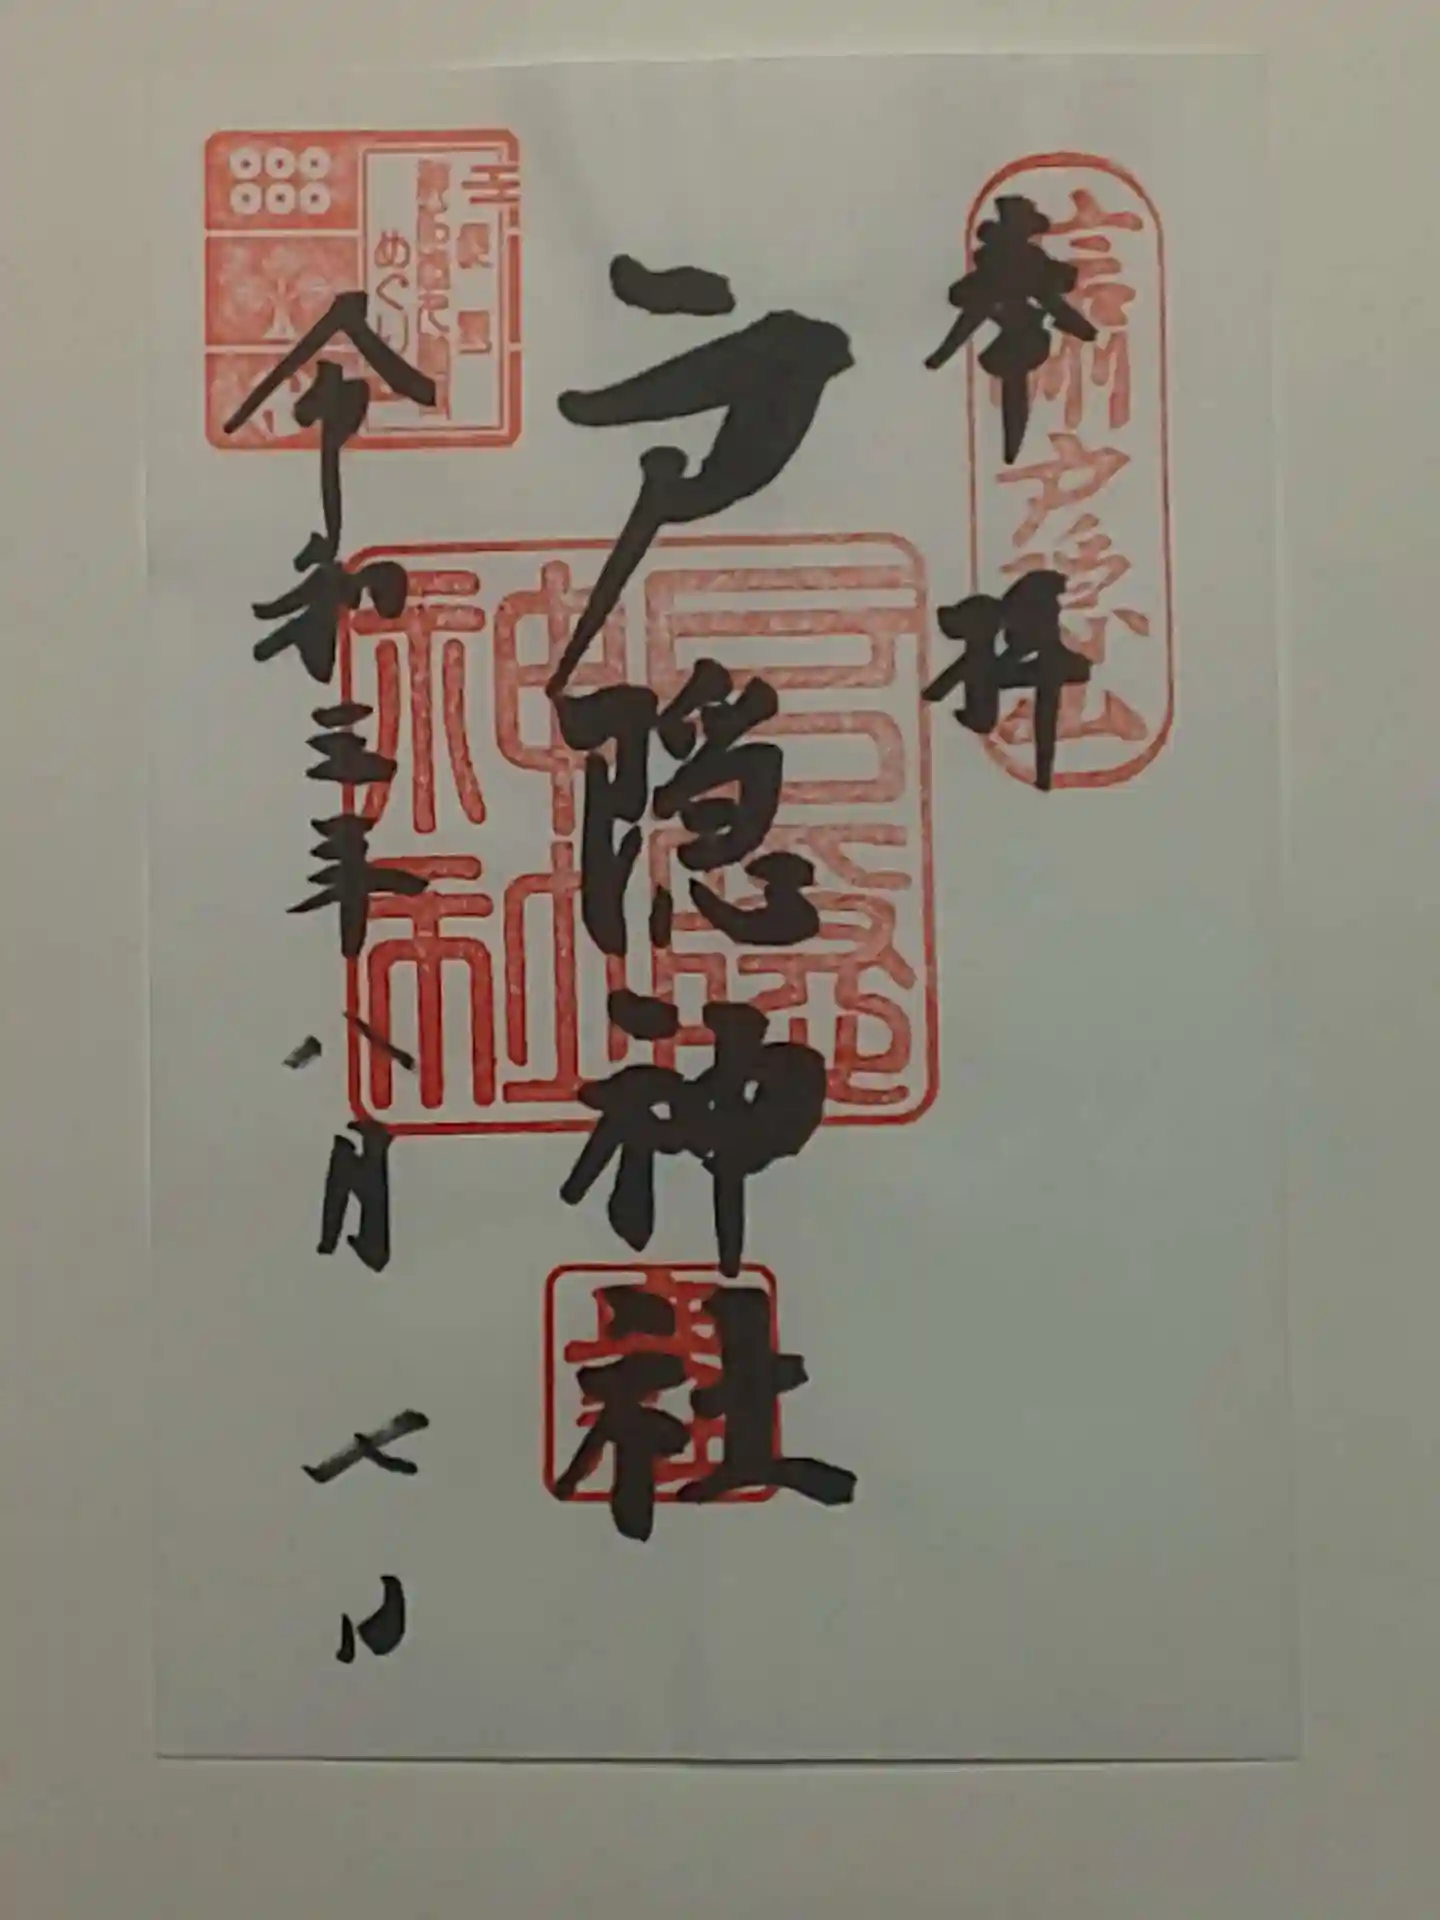 奉拝
信州戸隠山
戸隠神社
戸隠
神社
令和三年八月七日
めぐり